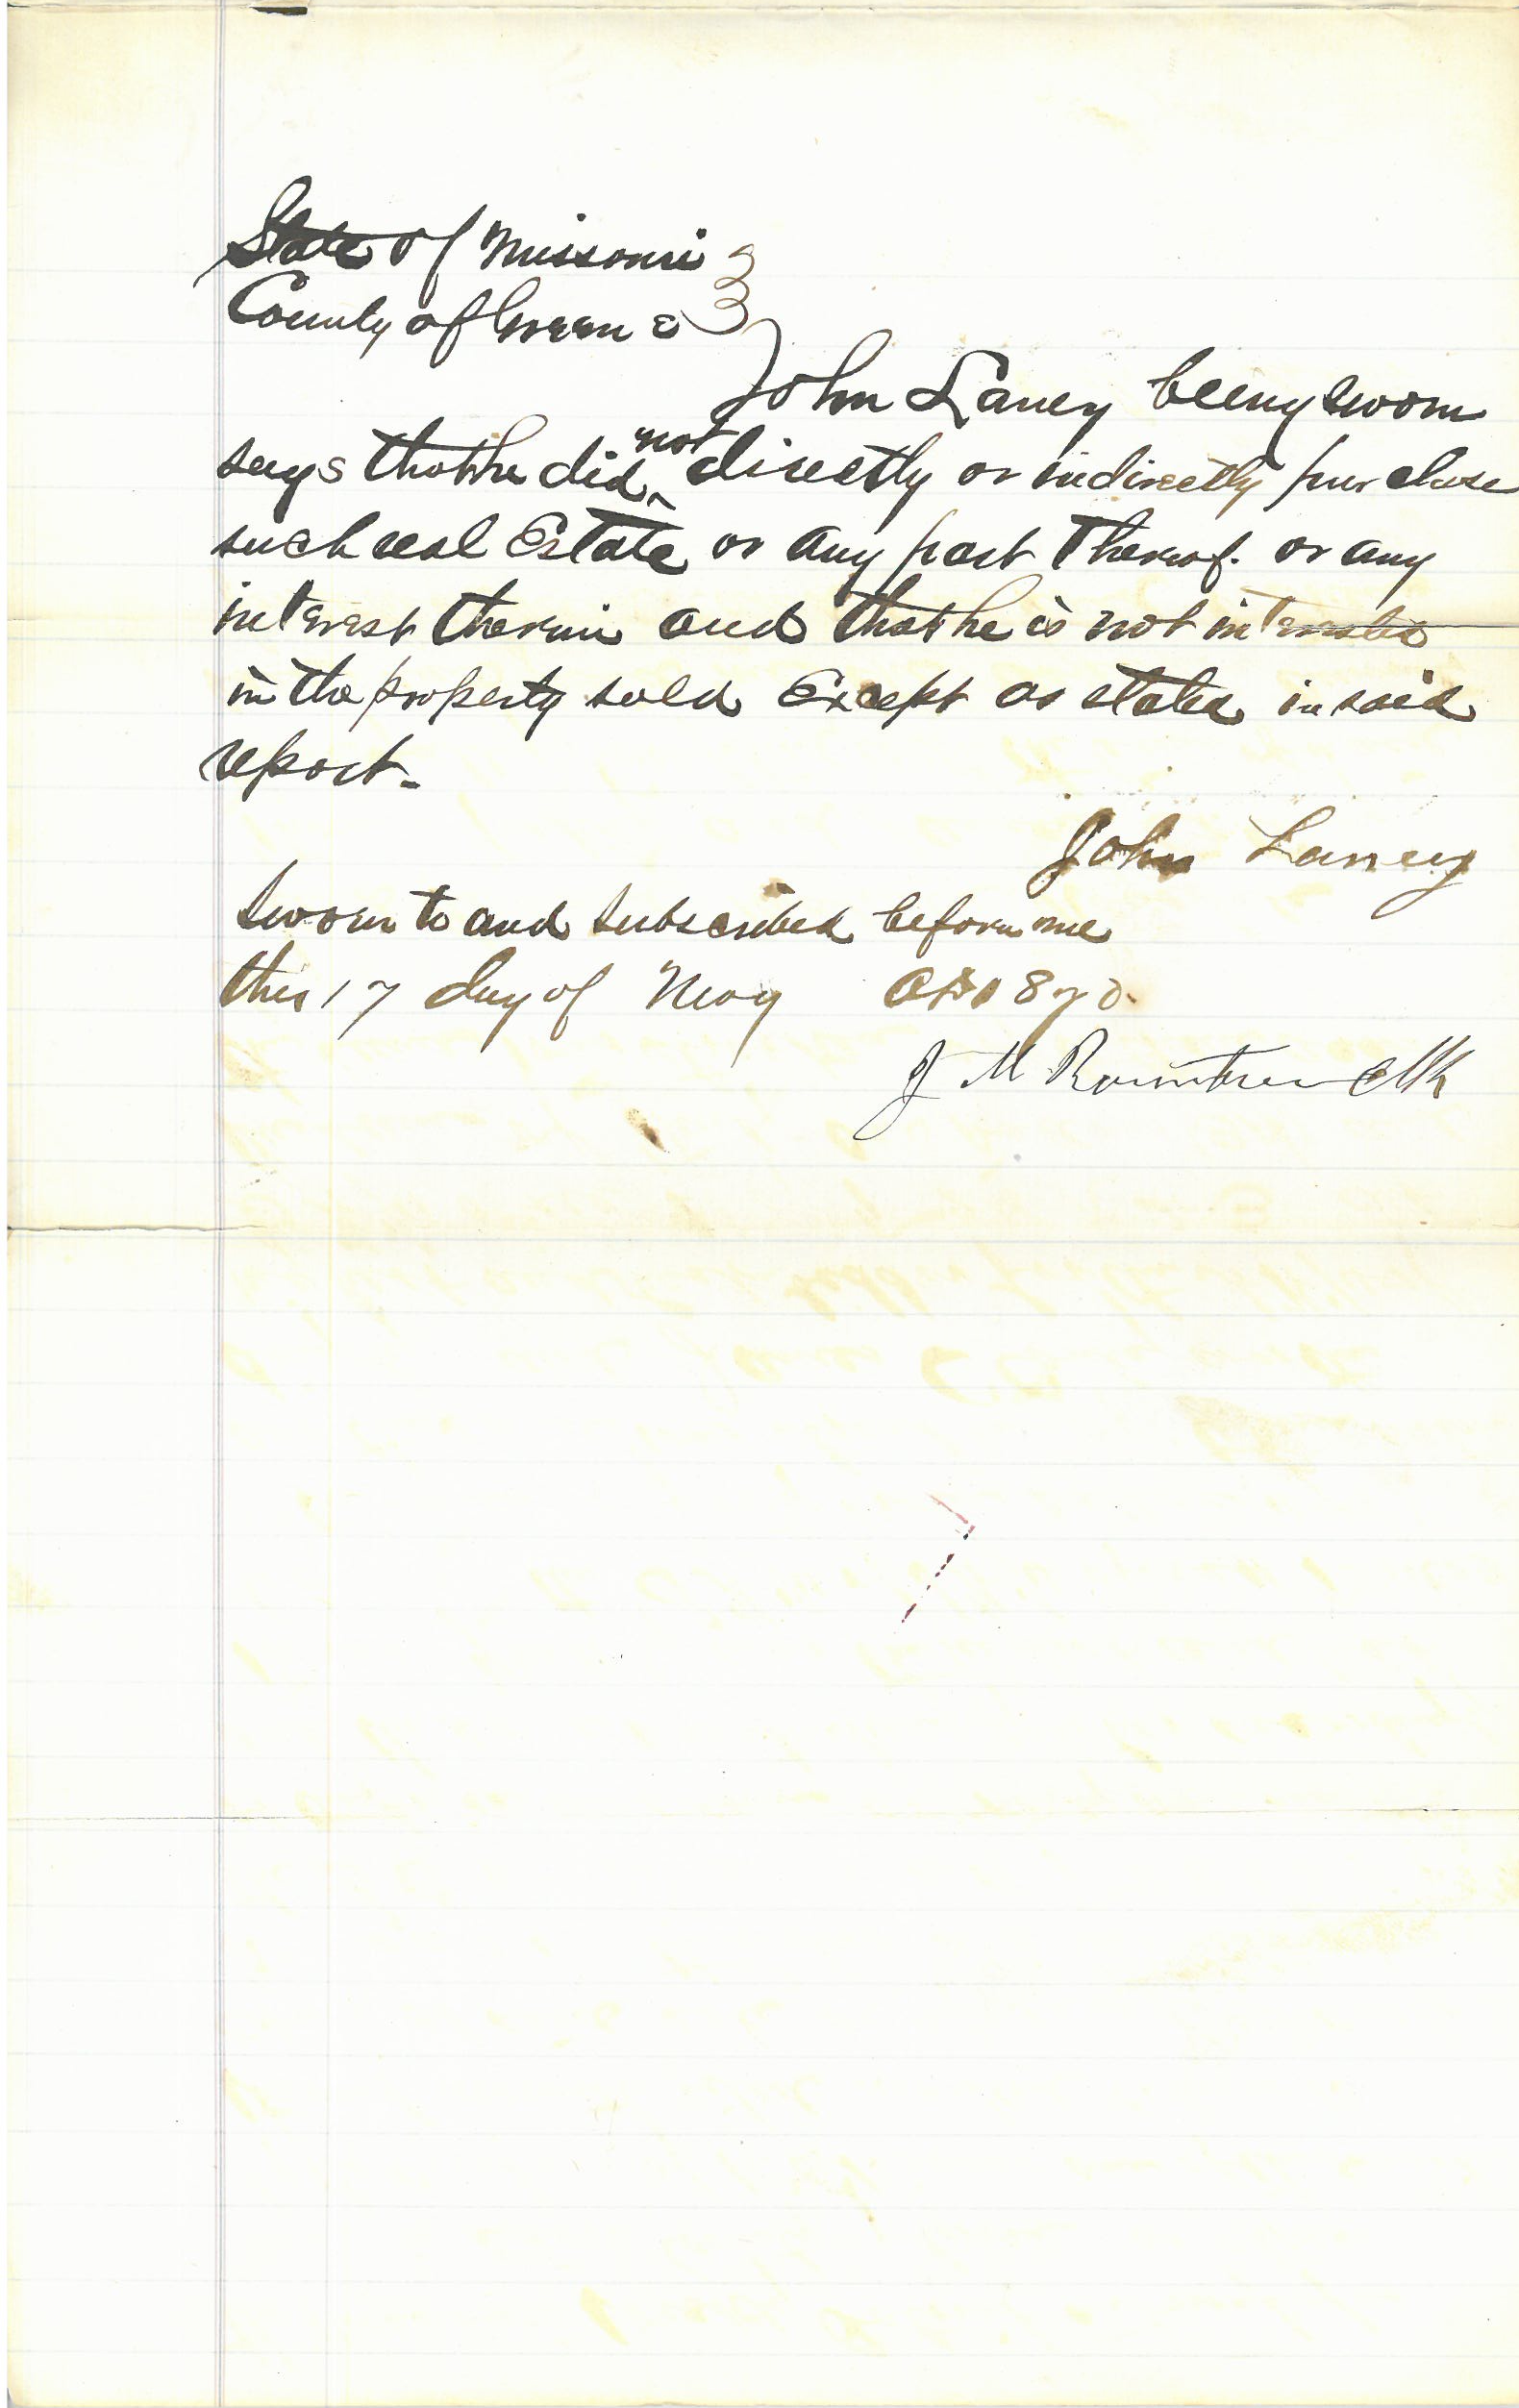 State of Missouri
County of Greene
John Laney being sworn
says that he did not directly or indirectly purchase
such real Estate or any part thereof. or any
interest therein and that he is not interested
in the property sold Except as stated in said
report.
John Laney
Sworn to and subscribed before me
this 17 day of May AD 1870.
J M Rountree Clk